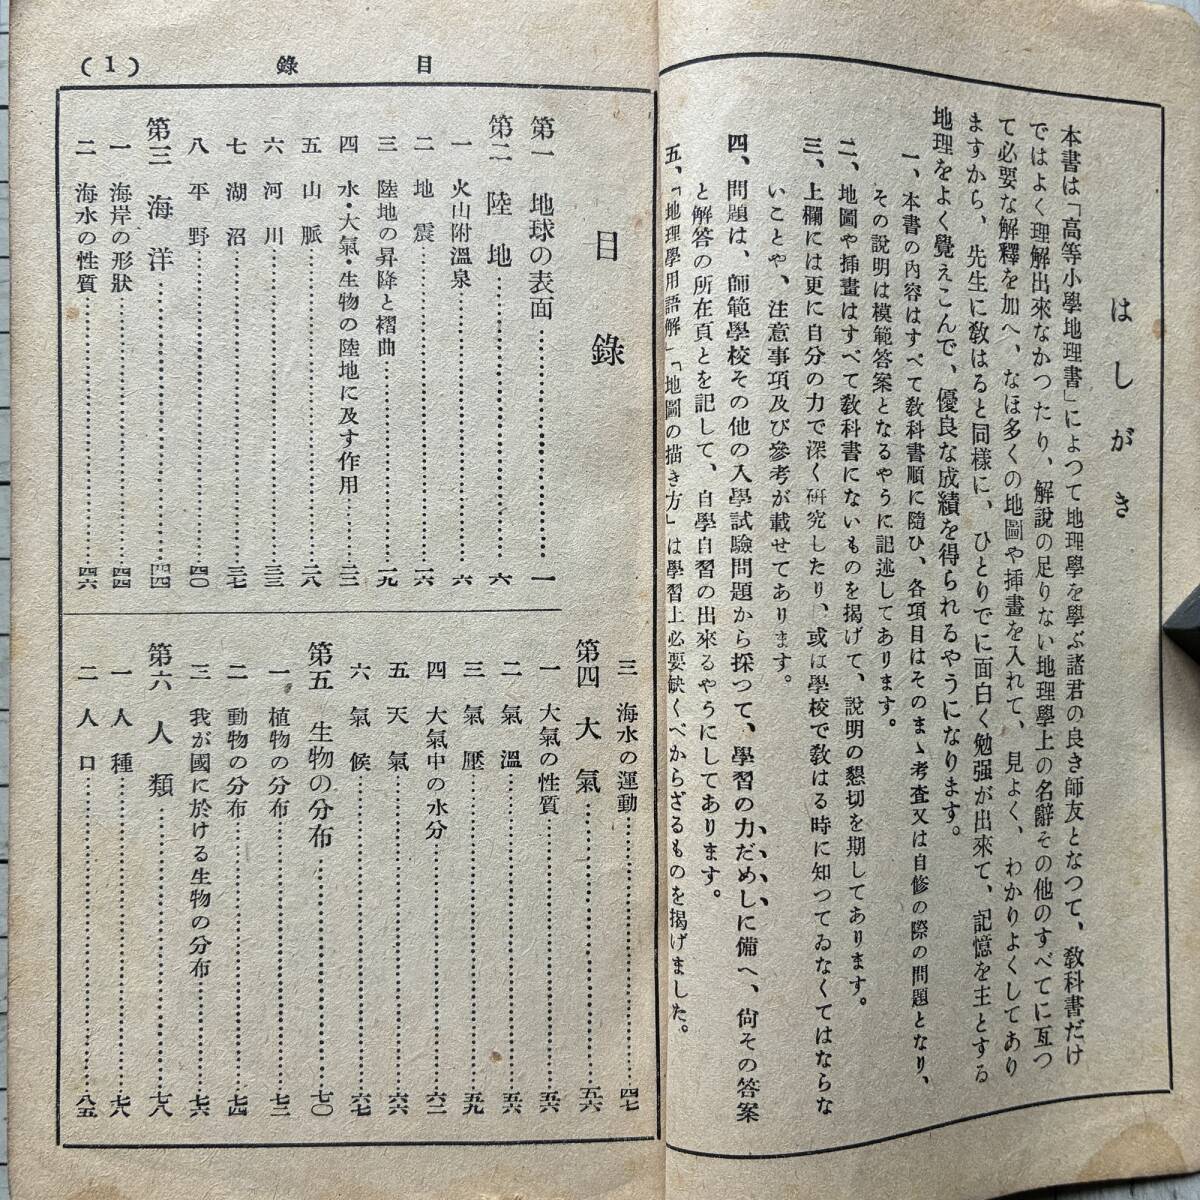 はしがき
本書は「高等小學地理書」によつて地理學を學ぶ諸君の良き師友となつて、敎科書だけ
ではよく理解出來なかつたり、解說の足りない地理學上の名辭その他のすべてに亙つ
て必要な解釋を加へ、なほ多くの地圖や挿畫を入れて、見よく、わかりよくしてあり
ますから、先生に敎はると同樣に、ひとりでに面白く勉强が出來て、記憶を主とする
地理をよく覺えこんで、優良な成績を得られるやうになります。
一、本書の內容はすべて敎科書順に隨ひ、各項目はそのまゝ考査又は自修の際の問題となり、
その說明は模範答案となるやうに記述してあります。
二、地圖や挿畫はすべて敎科書にないものを揭げて、說明の懇切を期してあります。
三、上欄には更に自分の力で深く硏究したり、或は學校で敎はる時に知つてゐなくてはならな
いことや、注意事項及び參考が載せてあります。
四、問題は、師範學校その他の入學試驗問題から採つて、學習の力だめしに備へ、尙その答案
と解答の所在頁とを記して、自學自習の出來るやうにしてあります。
五、「地理學用語解」「地圖の描き方」は學習上必要缺くべからざるものを揭げました。
目錄 (1)
目錄
第一 地球の表面 一
第二 陸地 六
一 火山附溫泉 六
二 地震 一六
三 陸地の昇降と褶曲 一九
四 水・大氣・生物の陸地に及す作用 二二
五 山脈 二八
六 河川 三三
七 湖沼 三七
八 平野 四〇
第三 海洋 四四
一 海岸の形狀 四四
二 海水の性質 四六
三 海水の運動 四七
第四 大氣 五六
一 大氣の性質 五六
二 氣溫 五六
三 氣壓 五九
四 大氣中の水分 六二
五 天氣 六六
六 氣候 六七
第五 生物の分布 七〇
一 植物の分布 七二
二 動物の分布 七四
三 我が國に於ける生物の分布 七六
第六 人類 七八
一 人種 七八
二 人口 八五